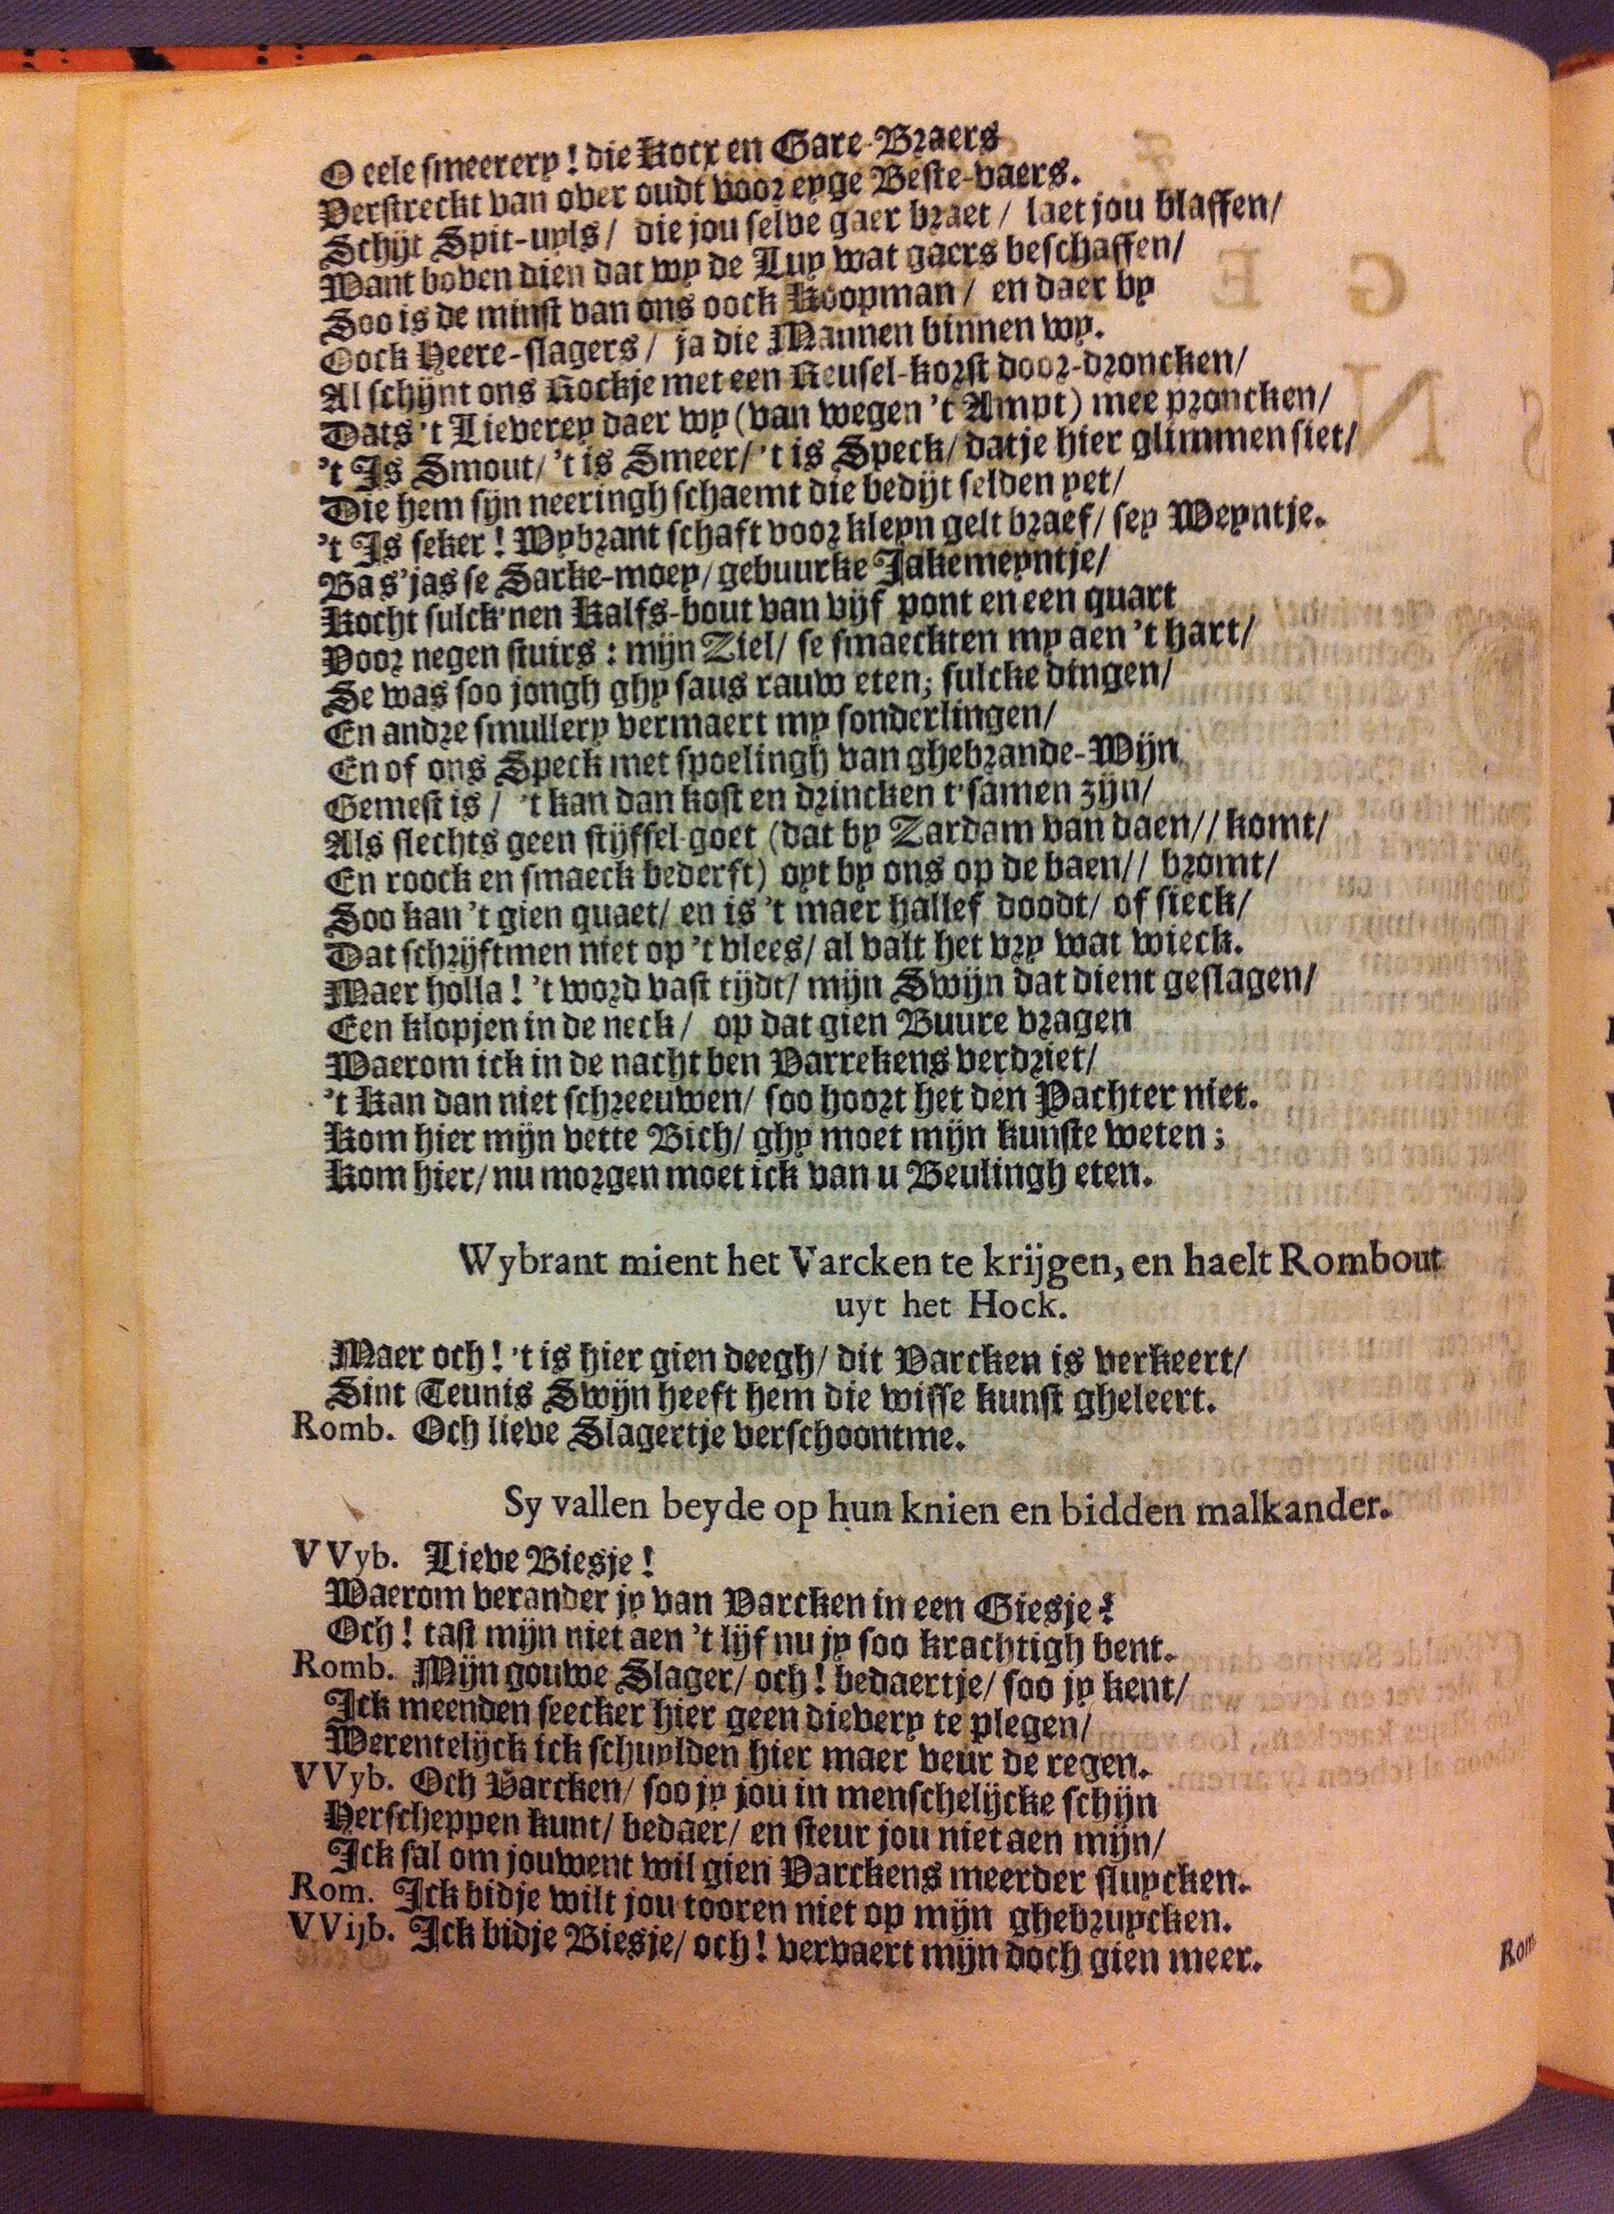 O eele smeerery! die Kocx en Gare-Braers
Verstreckt van over oudt voor eyge Beste-vaers.
Schijt Spit-uyls/ die jou selve gaer braet/ laet jou blaffen/
Want boven dien dat wy de Luy wat gaers beschaffen/
Soo is de minst van ons oock Koopman/ en daer by
Oock Heere-slagers/ ja die Mannen binnen wy.
Al schijnt ons Rockje met een Reusel-korst door-droncken/
Dats 't Lieverey daer wy (van wegen 't Ampt) mee proncken/
't Is Smout/ 't is Smeer/ 't is Speck/ datje hier glimmen siet/
Die hem sijn neeringh schaemt die bedijt selden yet/
't Is seker! Wybrant schaft voor kleyn gelt braef/ sey Weyntje.
Bas'jas se Sarke-moey/ gebuurke Jakemeyntje/
Kocht sulck'nen Kalfs-bout van vijf pont en een quart
Voor negen stuirs: mijn Ziel/ se smaeckten my aen 't hart/
Se was soo jongh ghy saus rauw eten; sulcke dingen/
En andre smullery vermaert my sonderlingen/
En of ons Speck met spoelingh van ghebrande-Wijn
Gemest is/ 't kan dan kost en drincken t'samen zijn/
Als slechts geen stijffel-goet (dat by Zardam van daen// komt/
En roock en smaeck bederft) oyt by ons op de baen// bromt/
Soo kan 't gien quaet/ en is 't maer hallef doodt/ of sieck/
Dat schrijftmen niet op 't vlees/ al valt het vry wat wieck.
Maer holla! 't word vast tijdt/ mijn Swijn dat dient geslagen/
Een klopjen in de neck/ op dat gien Buure vragen
Waerom ick in de nacht ben Varrekens verdriet/
't Kan dan niet schreeuwen/ soo hoort het den Pachter niet.
Kom hier mijn vette Bich/ ghy moet mijn kunste weten;
Kom hier/ nu morgen moet ick van u Beulingh eten.
Wybrant mient het Varcken te krijgen, en haelt Rombout
uyt het Hock.
Maer och! 't is hier gien deegh/ dit Varcken is verkeert/
Sint Teunis Swijn heeft hem die wisse kunst gheleert.
Romb. Och lieve Slagertje verschoontme.
Sy vallen beyde op hun knien en bidden malkander.
VVyb. Lieve Biesje!
Waerom verander jy van Varcken in een Giesje?
Och! tast mijn niet aen 't lijf nu jy soo krachtigh bent.
Romb. Mijn gouwe Slager/ och! bedaertje/ soo jy kent/
Ick meenden seecker hier geen dievery te plegen/
Werentelijck ick schuylden hier maer veur de regen.
VVyb. Och Varcken/ soo jy jou in menschelijcke schijn
Herscheppen kunt/ bedaer/ en steur jou niet aen mijn/
Ick sal om jouwent wil gien Varckens meerder sluycken.
Rom. Ick bidje wilt jou tooren niet op mijn ghebruycken.
VVijb. Ick bidje Biesje/ och! vervaert mijn doch gien meer.
Rom